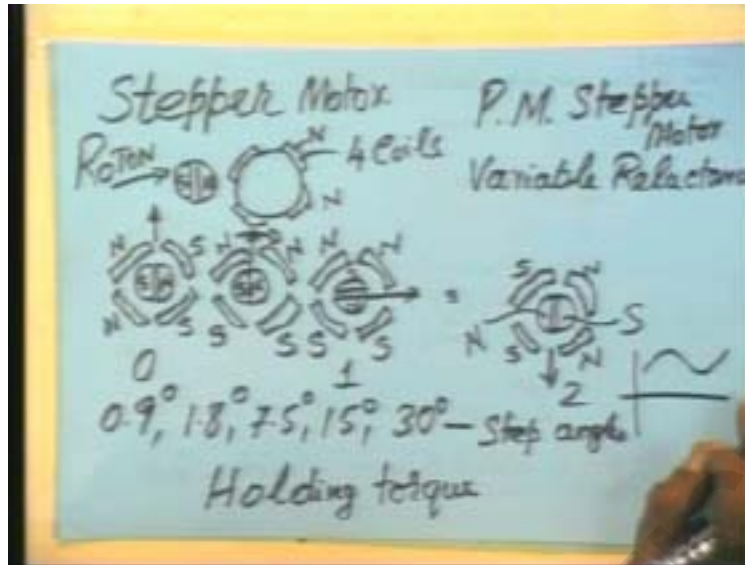 Stepper Motor
P.M. Stepper
Motor
Variable
ROTOR
4 Coils
N
N
N S N N N N S N
S N
N S S S S S N S S N
0 1 2
0.9°, 1.8°, 7.5°, 15°, 30° — Step angle
Holding torque